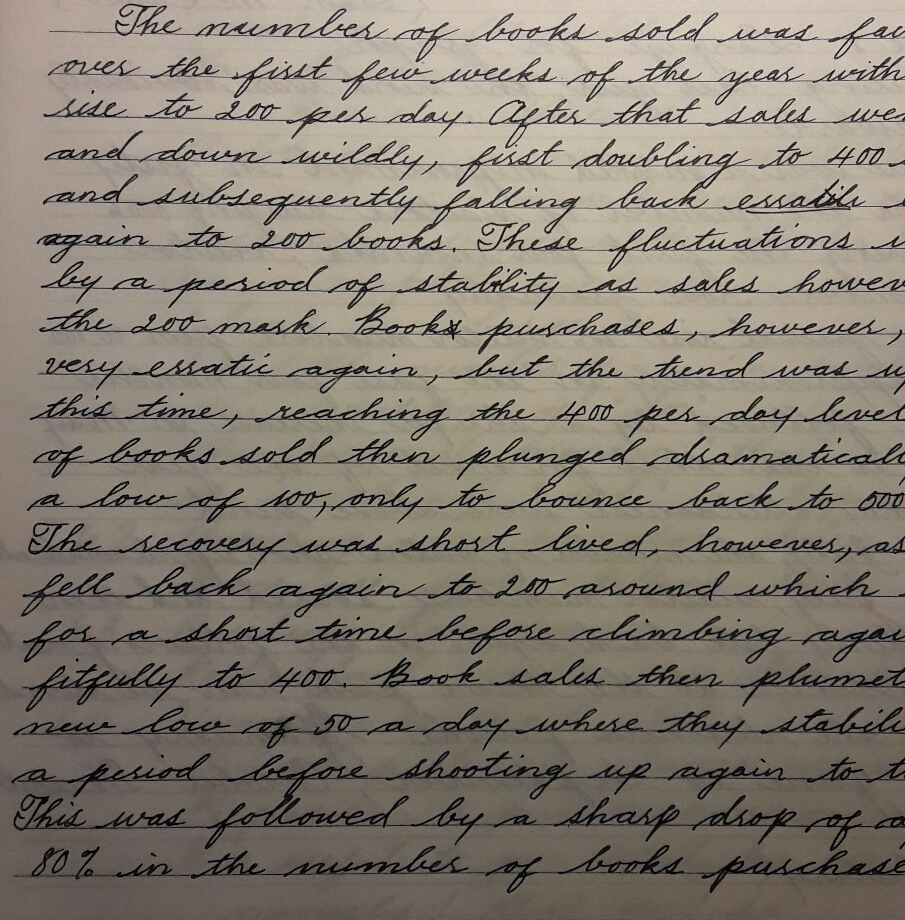 The number of books sold was fai
over the first few weeks of the year with
rise to 200 per day. After that sales we
and down wildly, first doubling to 400
and subsequently falling back
again to 200 books. These fluctuations
by a period of stability as sales howev
the 200 mark. Books purchases, however,
very erratic again, but the trend was up
this time, reaching the 400 per day level
of books sold then plunged dramatically
a low of 100, only to bounce back to 500
The recovery was short lived, however, as
fell back again to 200 around which
for a short time before climbing agai
fitfully to 400. Book sales then plumet
new low of 50 a day where they stabili
a period before shooting up again to t
This was followed by a sharp drop of a
80% in the number of books purchase